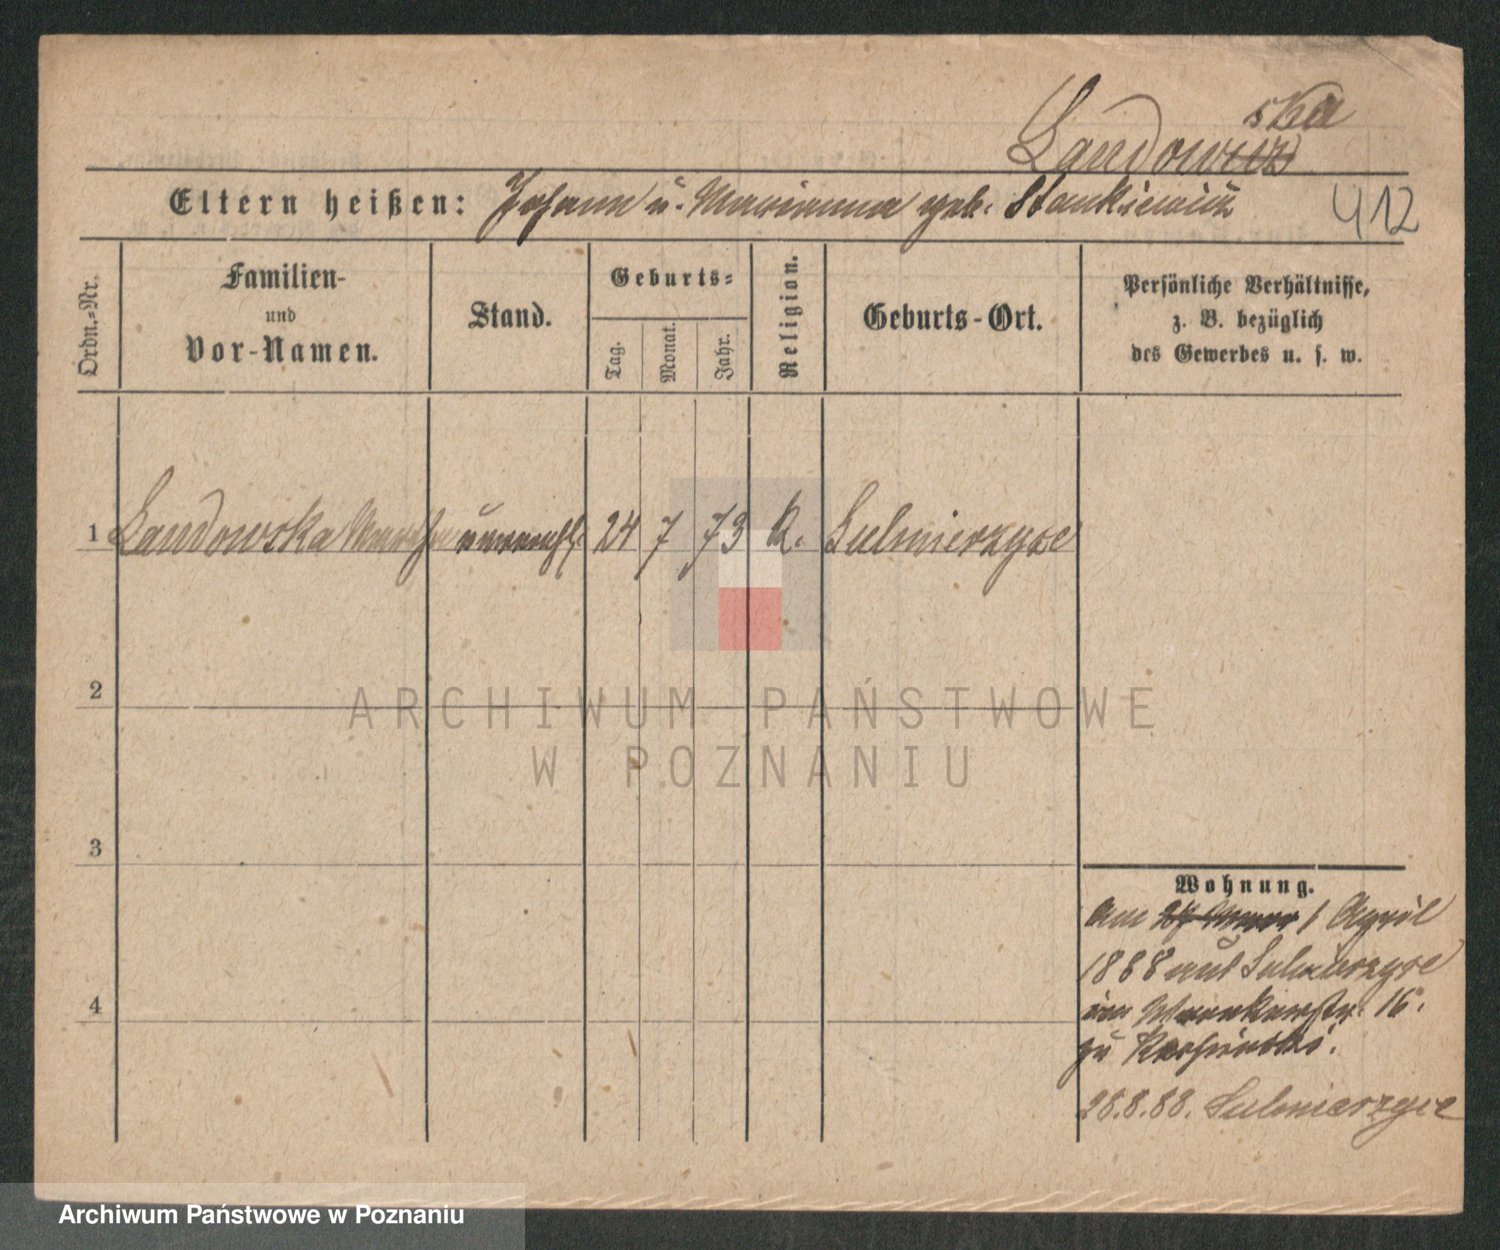 ska
Landowicz
Eltern heißen: Johann u. Marianna geb. Stankiewicz
412
Ordn.-Nr.
Familien-
und
Vor-Namen.
Stand.
Geburts-
Tag.
Monat.
Jahr.
Religion.
Geburts-Ort.
Persönliche Verhältnisse,
z. B. bezüglich
des Gewerbes u. s. w.
1 Landowska unverehl. 24 7 73 K. Sulmierzyce
2
ARCHIWUM PAŃSTWOWE
W POZNANIU
3
Wohnung.
Am 1 April
1888 aus Sulmierzyce
16.
zu
4
28.8.88. Sulmierzyce
Archiwum Państwowe w Poznaniu